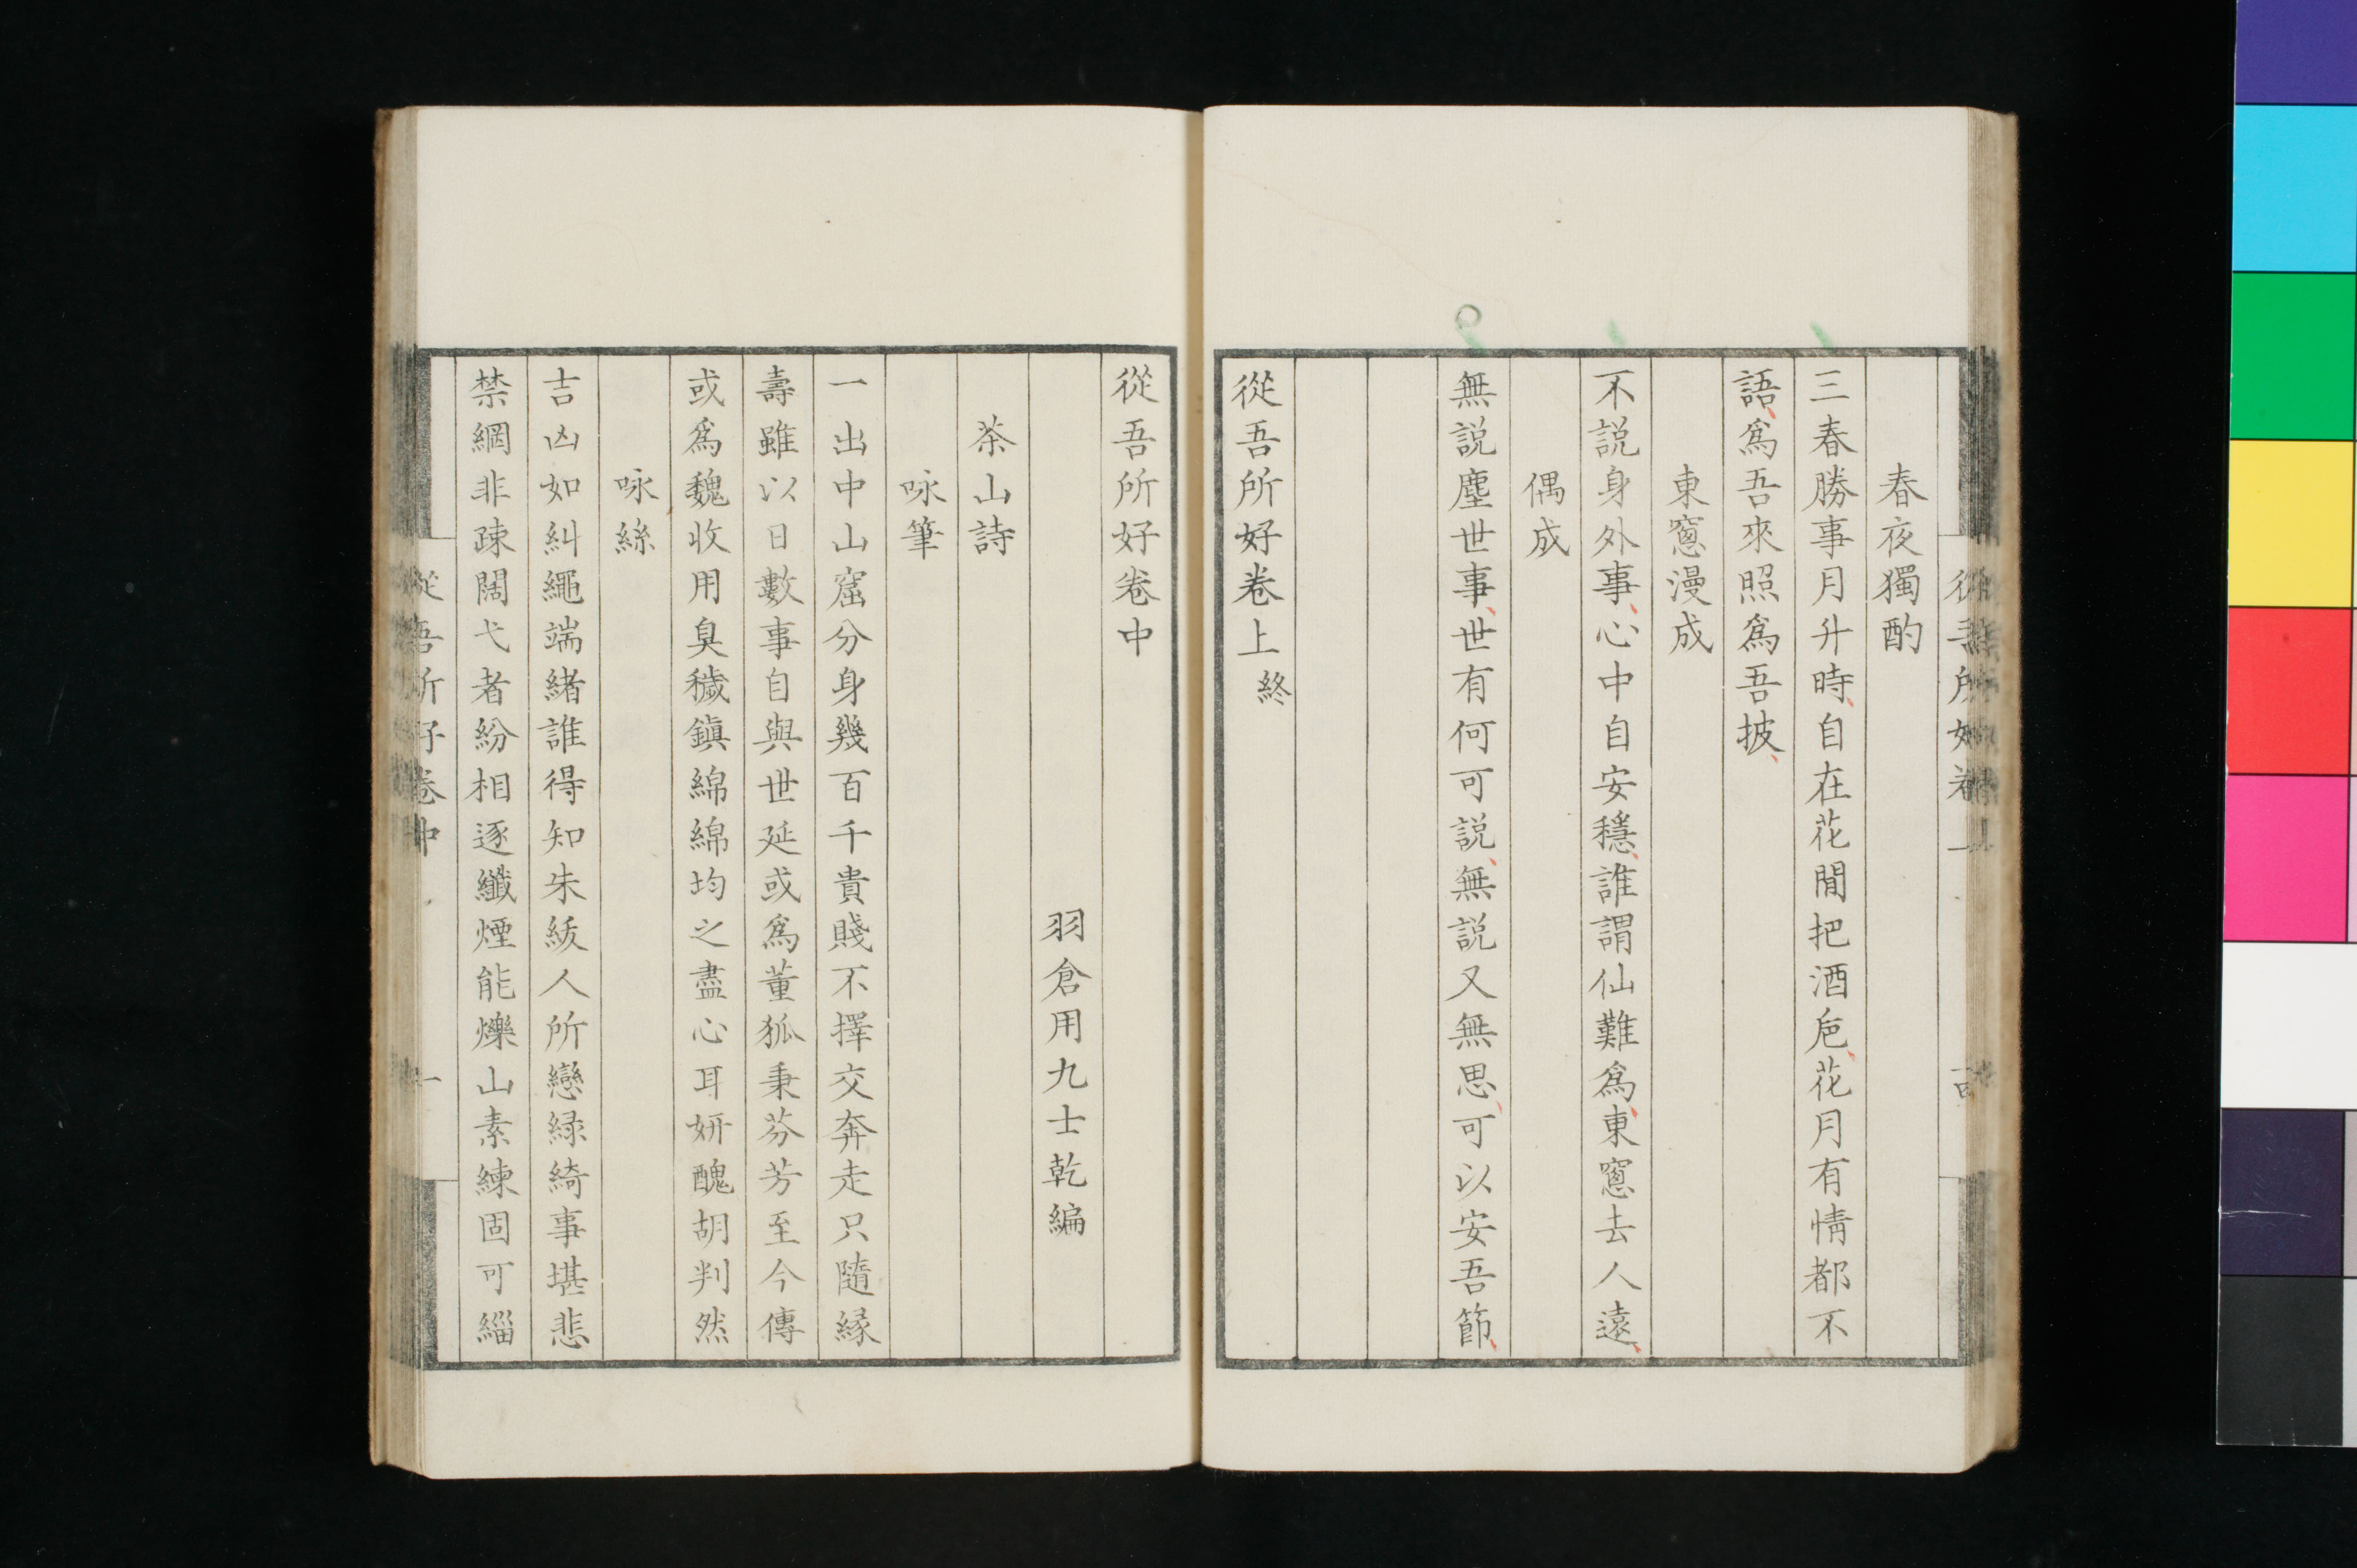 春夜獨酌
三春勝事月升時自在花間把酒卮花月有情都不
語爲吾來照爲吾披
東窓漫成
不説身外事心中自安穩誰謂仙難爲東窓去人遠
偶成
無説塵世事世有何可説無説又無思可以安吾節
從吾所好卷上終
從吾所好卷中
羽倉用九士乾編
茶山詩
咏筆
一出中山窟分身幾百千貴賤不擇交奔走只隨緣
壽雖以日數事自與世延或爲董狐秉芬芳至今傳
或爲魏收用臭穢鎭綿綿均之盡心耳妍醜胡判然
咏絲
吉凶如糾繩端緒誰得知朱紱人所戀綠綺事堪悲
禁網非疎闊弋者紛相逐纖煙能爍山素練固可緇
從吾所好卷中
一